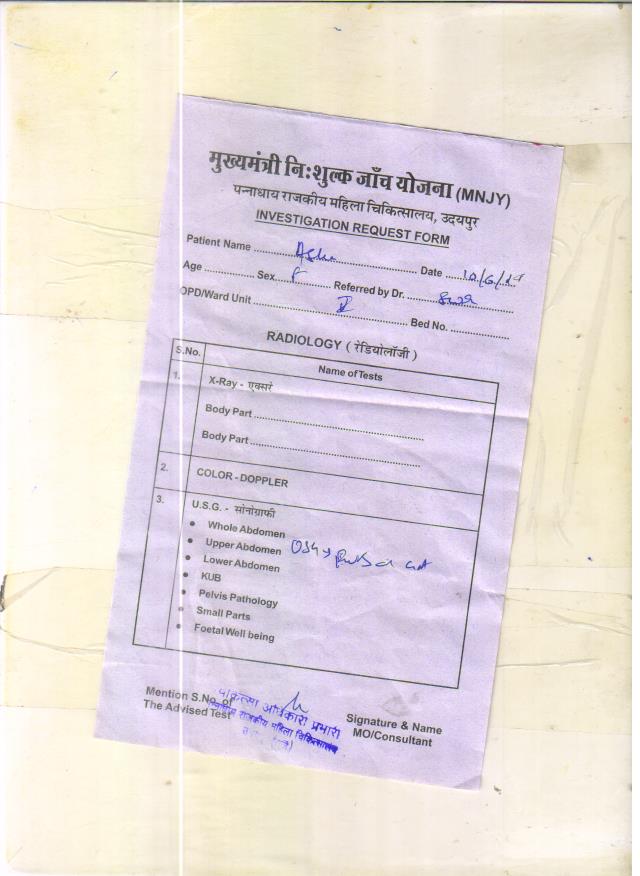 मुख्यमंत्री नि:शुल्क जाँच योजना (MNJY)
पन्नाधाय राजकीय महिला चिकित्सालय, उदयपुर
INVESTIGATION REQUEST FORM
Patient Name ........ Date ........
Age ........ Sex F ........ Referred by Dr. ........
OPD/Ward Unit ........ II ........ Bed No. ........
RADIOLOGY ( रेडियोलॉजी )
S.No. Name of Tests
1. X-Ray - एक्सरे
Body Part ........
Body Part ........
2. COLOR - DOPPLER
3. U.S.G. - सोनोग्राफी
• Whole Abdomen
• Upper Abdomen
• Lower Abdomen
• KUB
• Pelvis Pathology
• Small Parts
• Foetal Well being
चिकित्सा अधिकारी प्रभारी
राजकीय महिला चिकित्सालय
Mention S.No. of
The Advised Test
Signature & Name
MO/Consultant